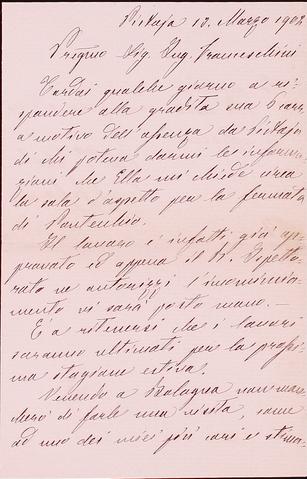 Pistoja 12. Marzo 1902
Pregmo Sig. Ing. Franceschini
Tardai qualche giorno a ri-
spondere alla gradita sua
a motivo dell'assenza da Pistoja
di chi poteva darmi le informa-
zioni che Ella mi chiede circa
la sala d'aspetto per la fermata
di
Il lavoro è infatti già ap-
provato ed appena il R. Ispetto-
rato ne autorizzi l'incomincia-
mento vi sarà posto mano.—
È a ritenersi che i lavori
saranno ultimati per la prossi-
ma stagione estiva.—
Venendo a Bologna non man-
cherò di farle una visita, come
ad uno dei miei più cari e stima-